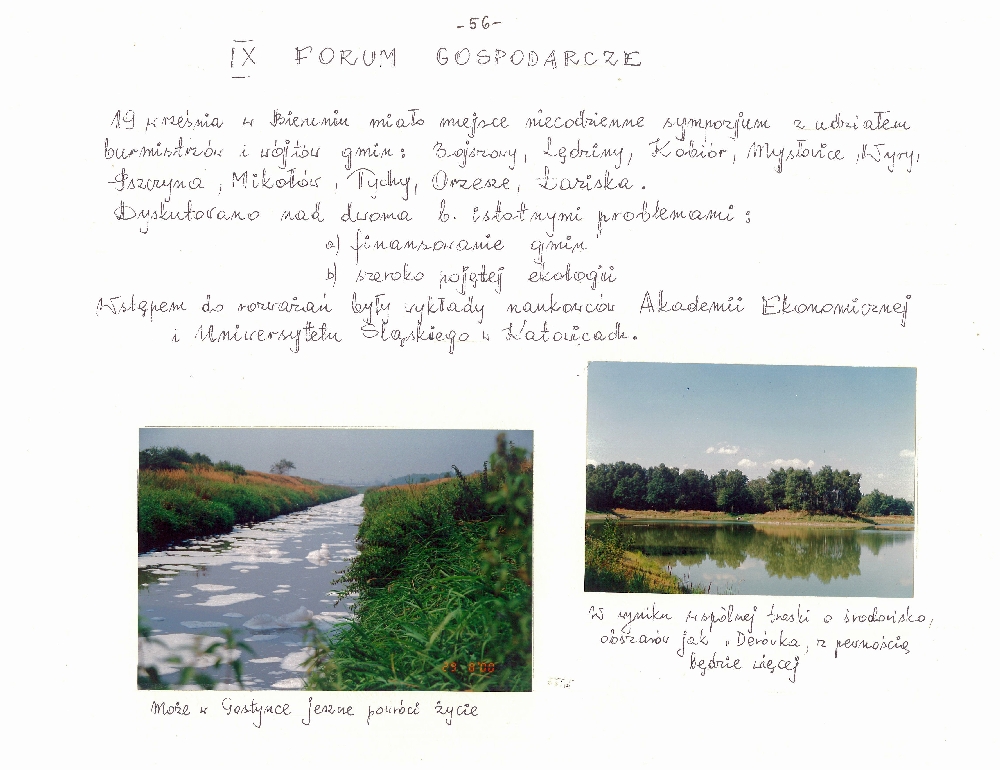 -56-
IX FORUM GOSPODARCZE
19 września w Bieruniu miało miejsce niecodzienne sympozjum z udziałem
burmistrzów i wójtów gmin: Bojszowy, Lędziny, Kobiór, Mysłowice, Wyry,
Pszczyna, Mikołów, Tychy, Orzesze, Łaziska.
Dyskutowano nad dwoma b. istotnymi problemami:
a) finansowanie gmin
b) szeroko pojętej ekologii
Wstępem do rozważań były wykłady naukowców Akademii Ekonomicznej
i Uniwersytetu Śląskiego w Katowicach.
Może w Gostynce jeszcze powróci życie
W wyniku wspólnej troski o środowisko,
obszarów jak "Derówka, z pewnością
będzie więcej